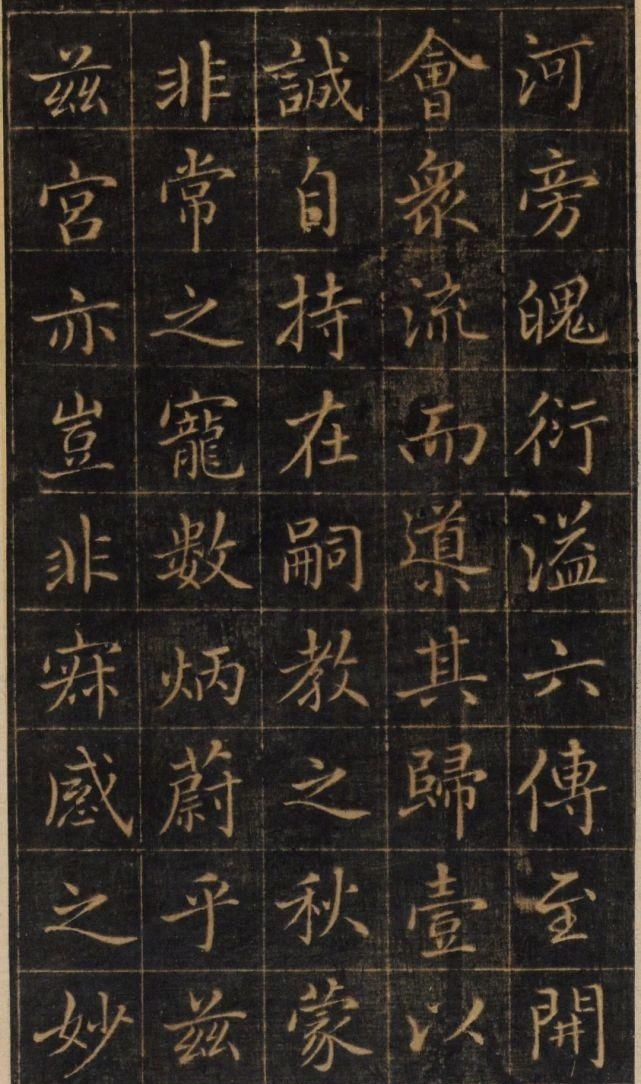 河旁魄衍溢六傳至開
會衆流而㵀其歸壹以
誠自持在嗣教之秋蒙
非常之寵數炳蔚乎茲
茲宮亦豈非寐感之妙